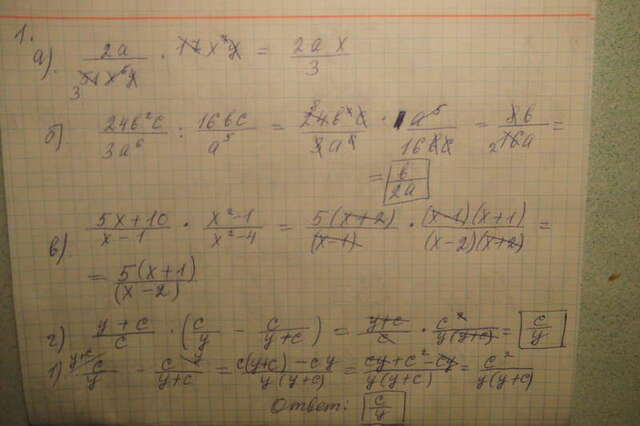 1.
а). 2a / 3 51x⁶y · 17x⁷y = 2a x / 3
б) 24b²c / 3a⁶ : 16bc / a⁵ = 24b²c / 3a⁶ · a⁵ / 16bc = 8b / 2 16a =
= b / 2a
в) 5x+10 / x-1 · x²-1 / x²-4 = 5(x+2) / (x-1) · (x-1)(x+1) / (x-2)(x+2) =
= 5(x+1) / (x-2)
г) y+c / c · (c / y - c / y+c) = y+c / c · c² / y(y+c) = c / y
1) y+c c / y - c y / y+c = c(y+c)-cy / y(y+c) = cy+c²-cy / y(y+c) = c² / y(y+c)
Ответ: c / y